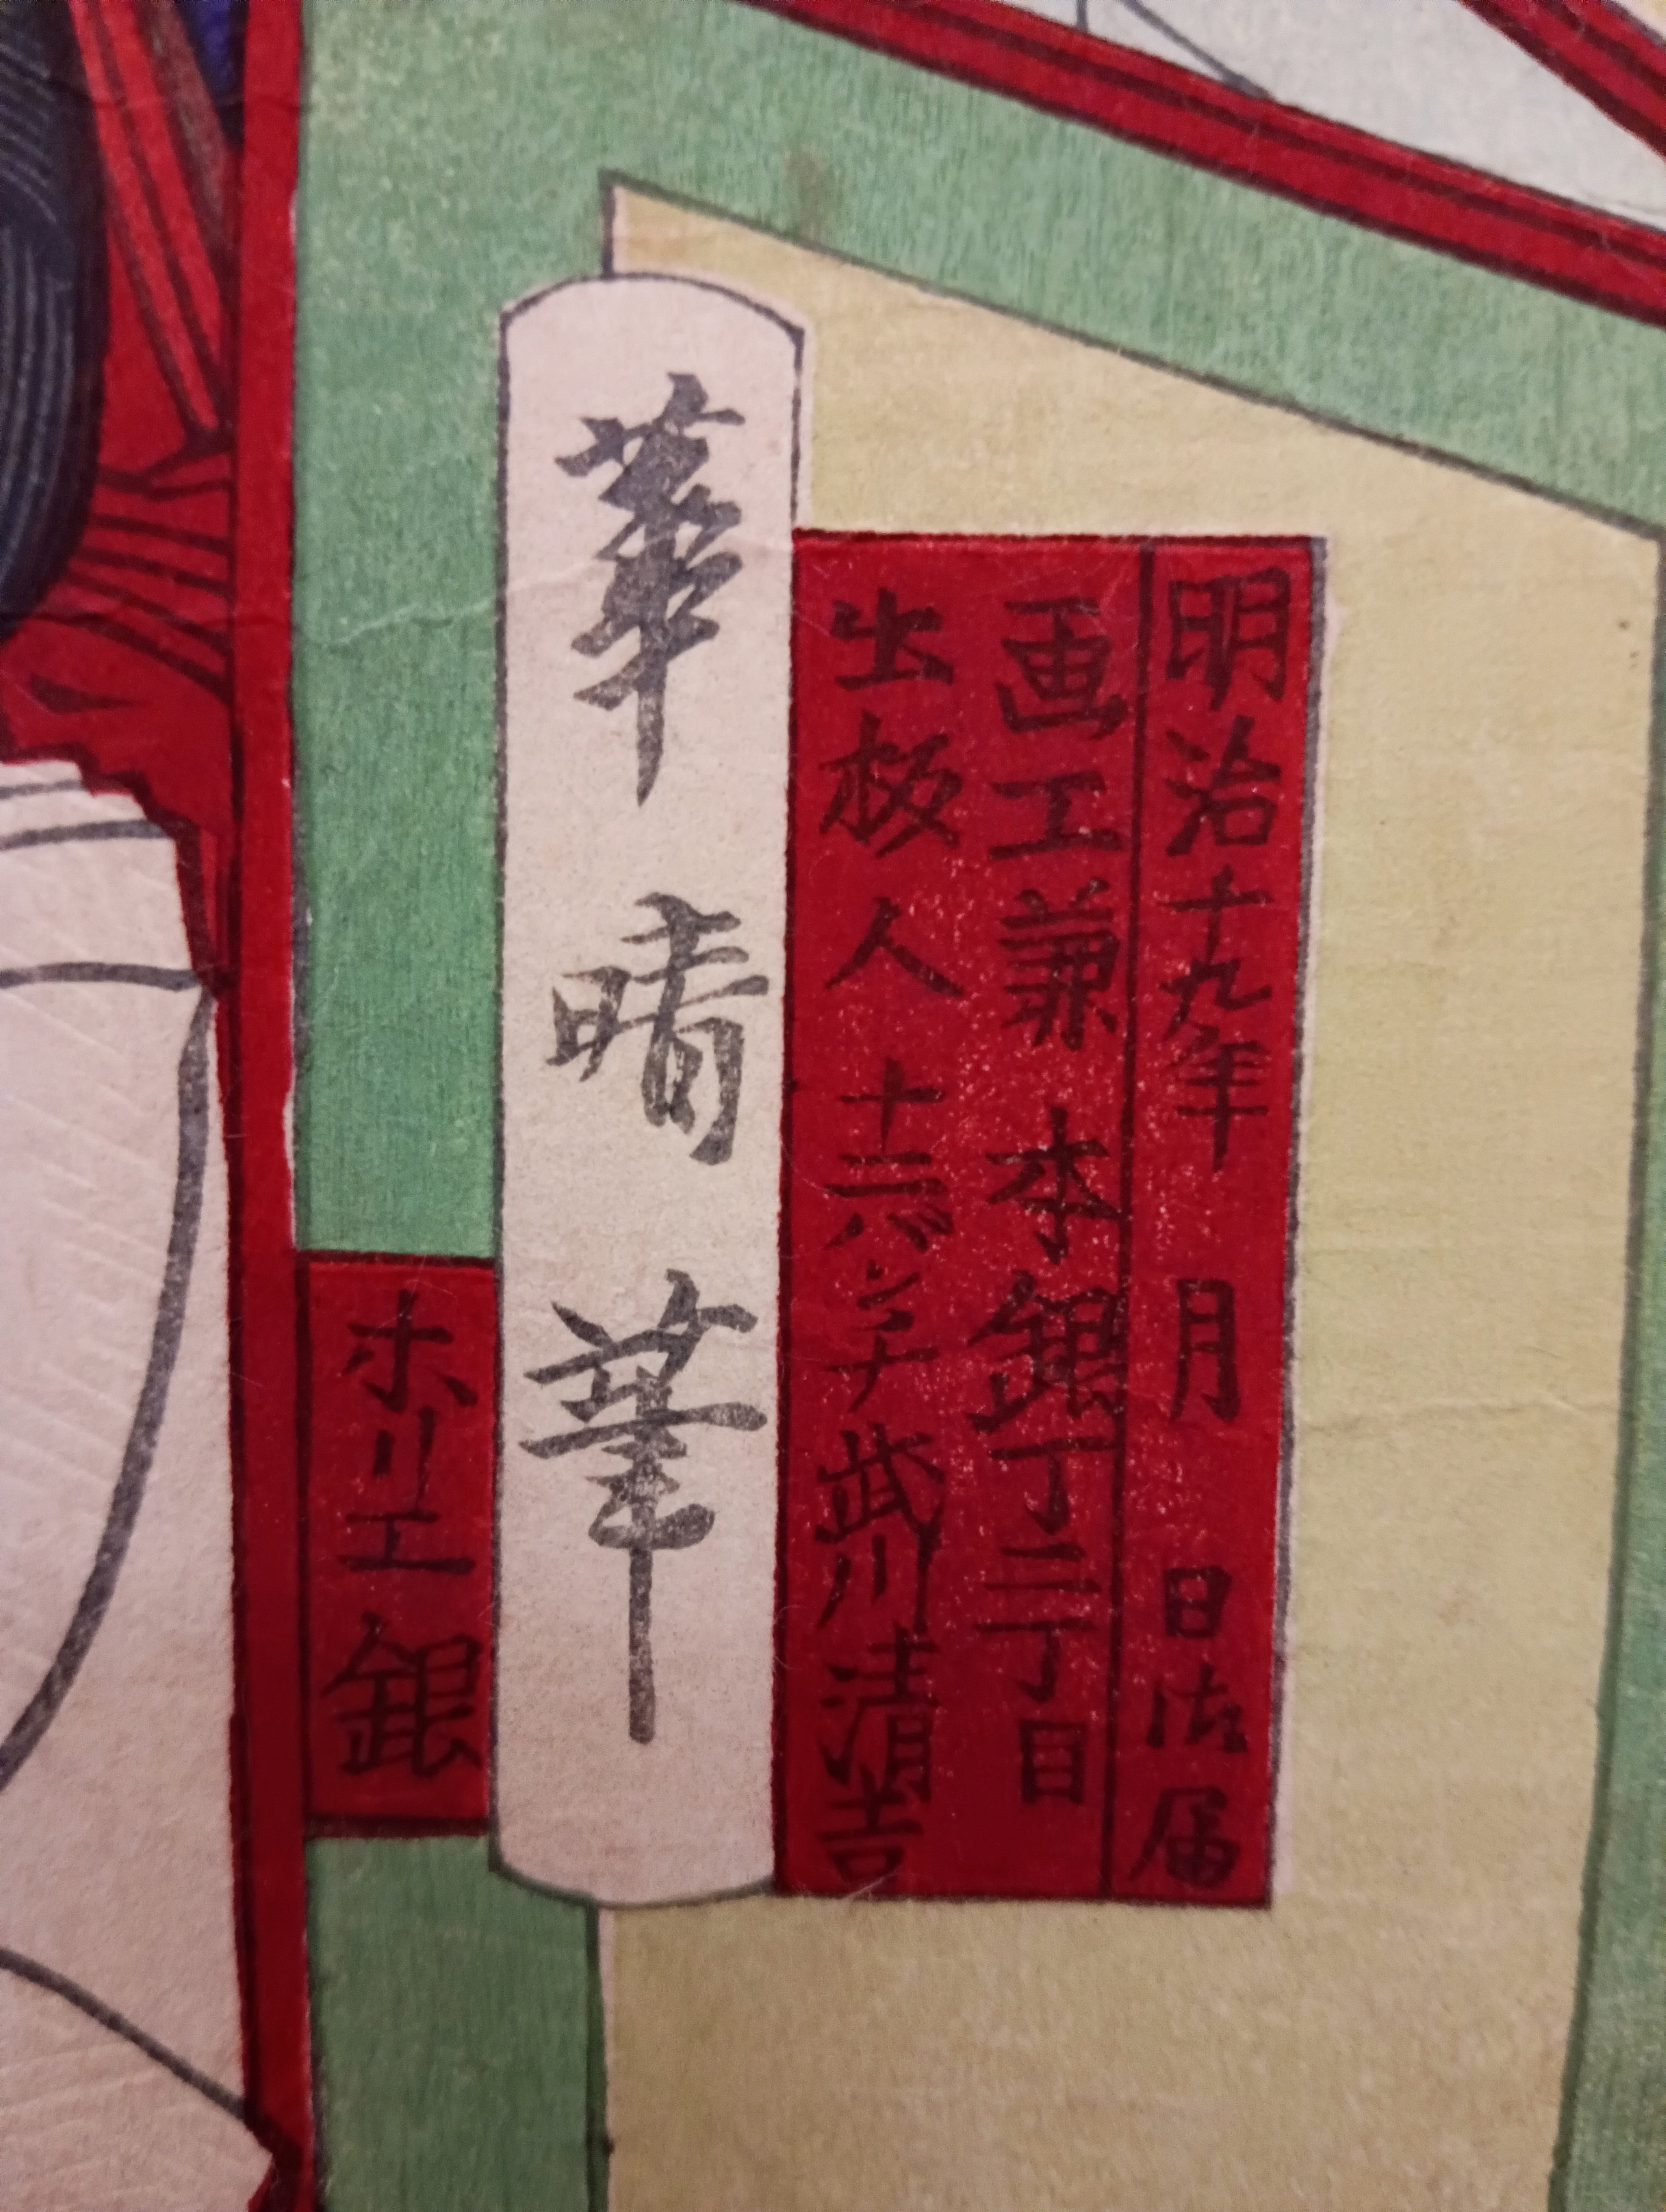 明治十九年 月 日御届
画工兼 本銀丁二丁目
出板人 十二バンチ 武川清吉
華晴筆
ホリ工銀